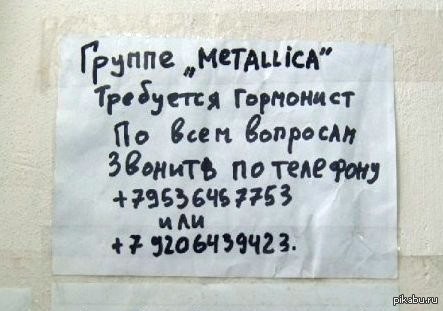 Группе „METALLiCA”
Требуется гормонист
По всем вопросам
Звонить по телефону
+79536457753
или
+79206439423.
pikabu.ru